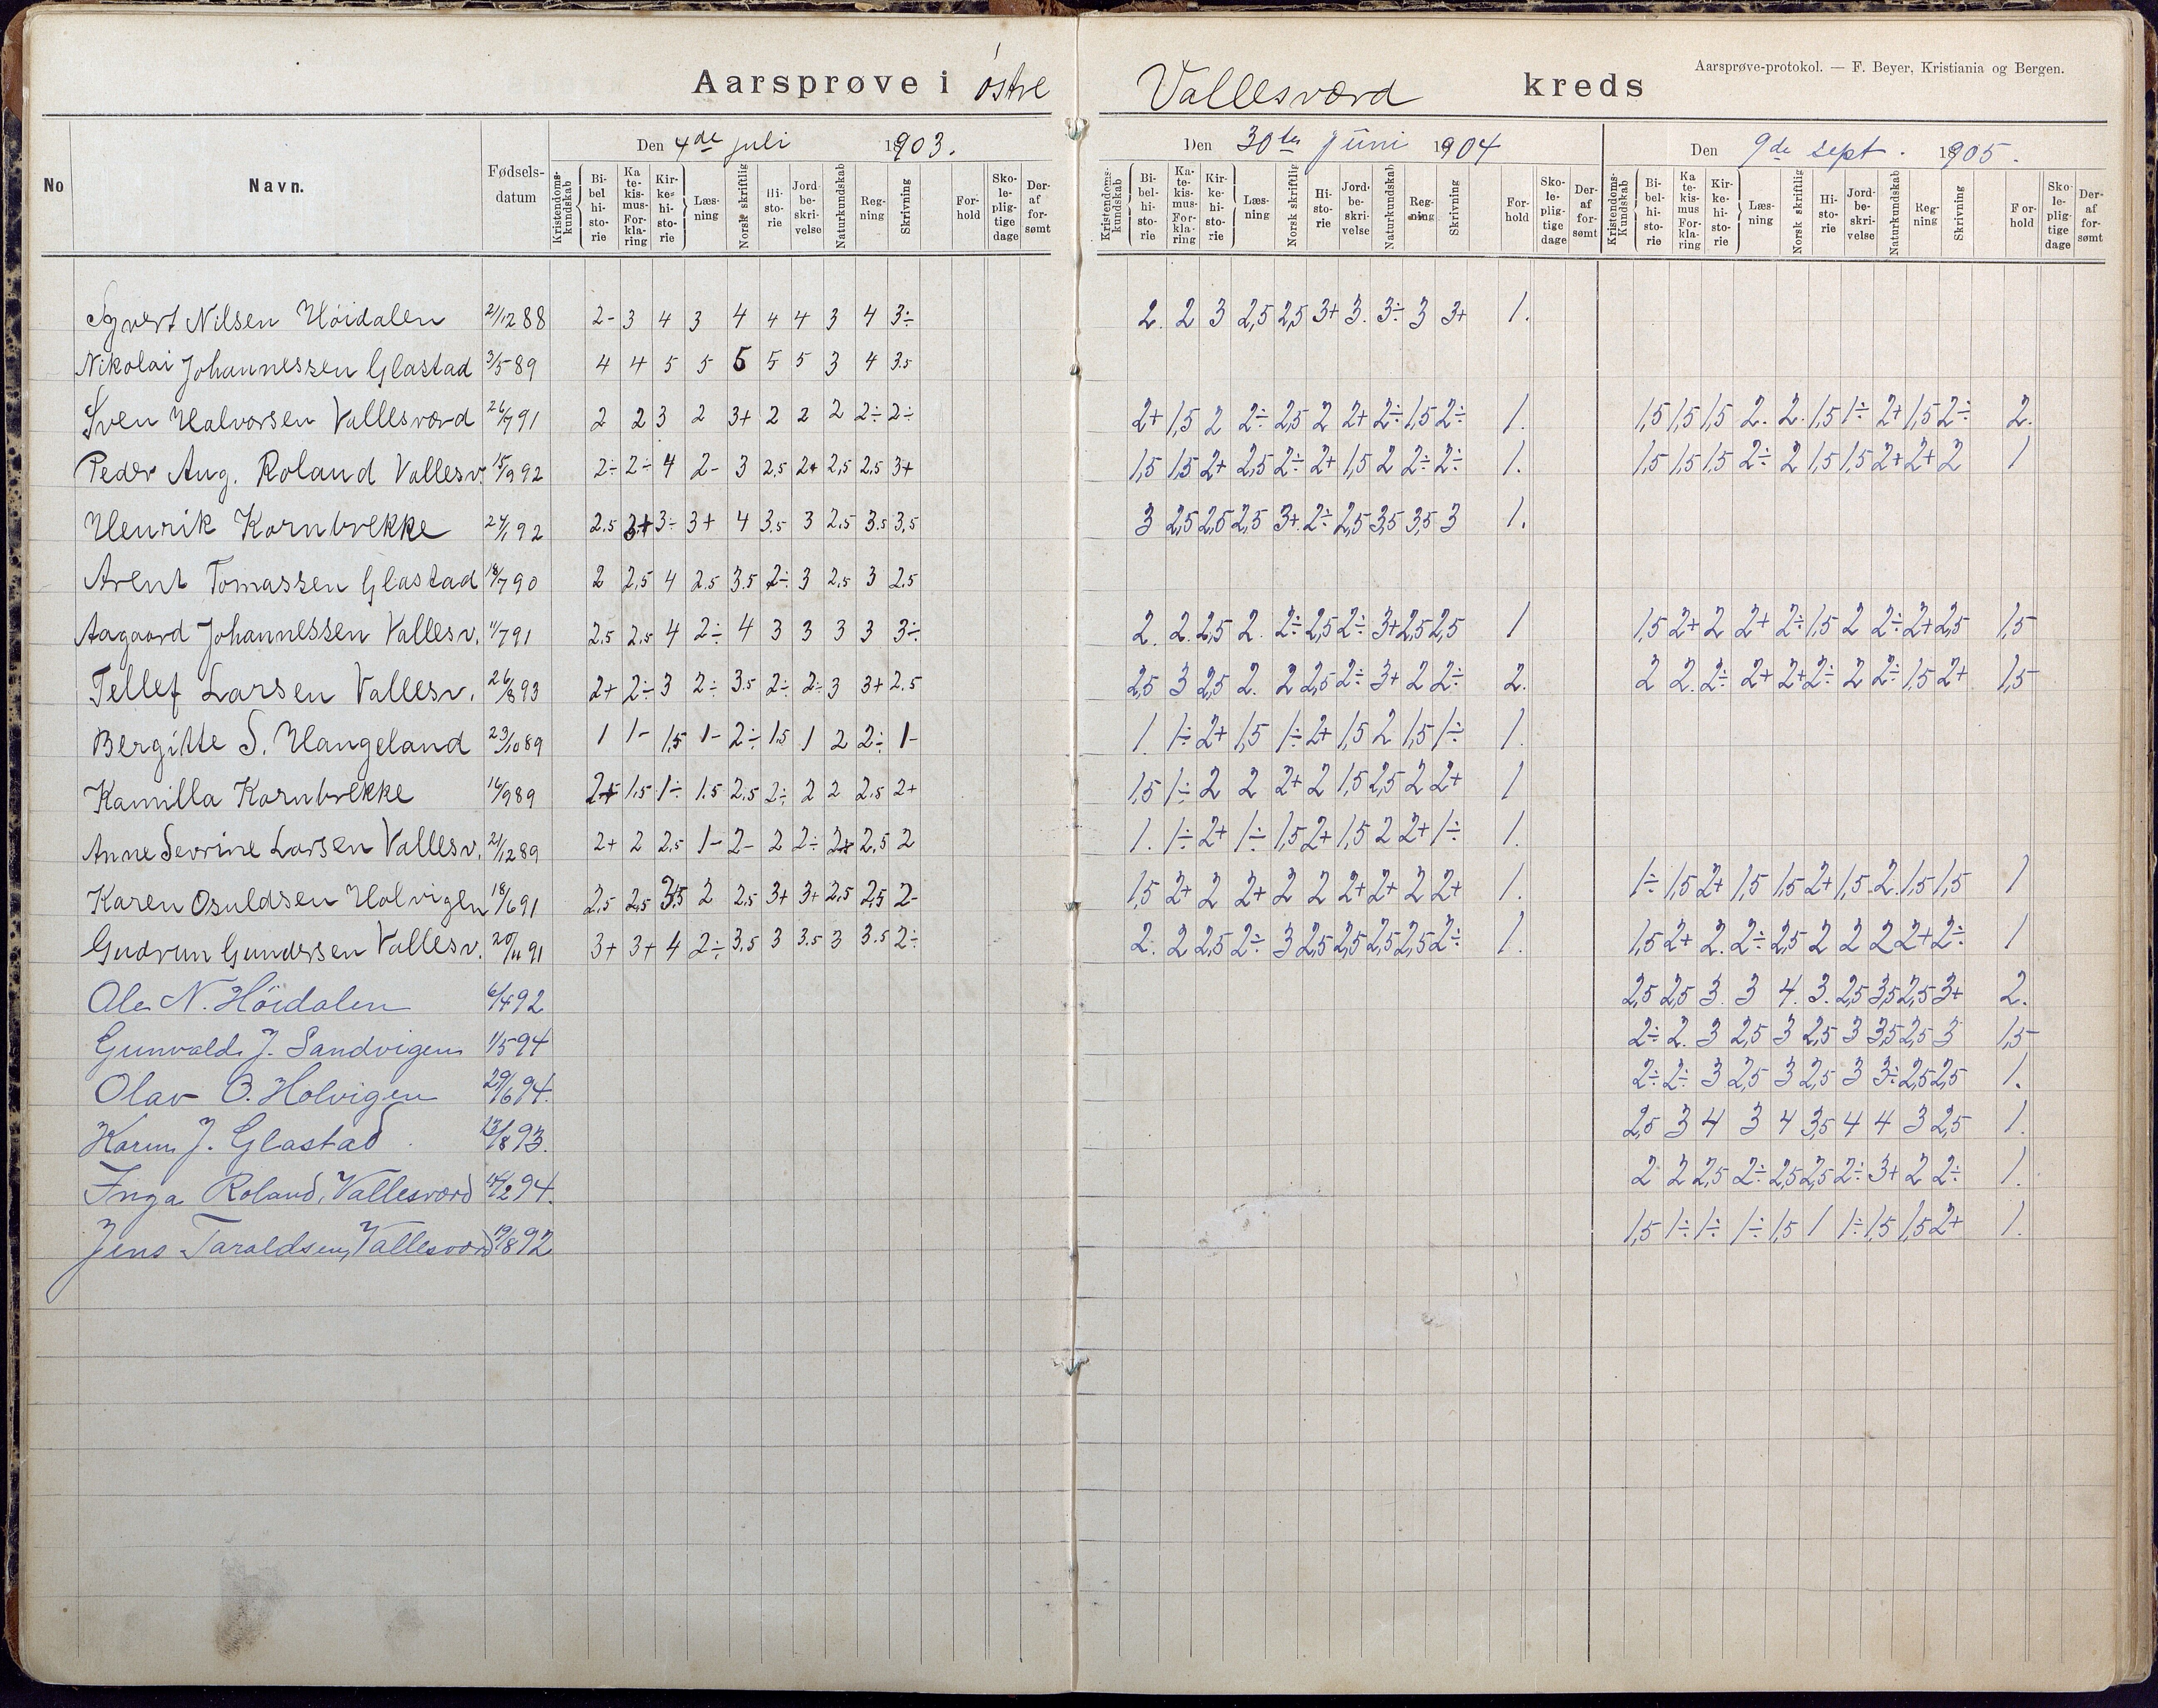 Aarsprøve i østre Vallesværd kreds
Aarsprøve-protokol. — F. Beyer, Kristiania og Bergen.
Den 4de juli 1903. Den 30te juni 1904 Den 9de sept. 1905.
No Navn. Fødsels-datum Kristendoms-kundskab Bibelhistorie Katekismus-Forklaring Kirkehistorie Læsning Norsk skriftlig Historie Jordbeskrivelse Naturkundskab Regning Skrivning Forhold Skolepligtige dage Deraf forsømt
Kristendoms-kundskab Bibelhistorie Katekismus-Forklaring Kirkehistorie Læsning Norsk skriftlig Historie Jordbeskrivelse Naturkundskab Regning Skrivning Forhold Skolepligtige dage Deraf forsømt
Kristendoms-Kundskab Bibelhistorie Katekismus Forklaring Kirkehistorie Læsning Norsk skriftlig Historie Jordbeskrivelse Naturkundskab Regning Skrivning Forhold Skolepligtige dage Deraf forsømt
Syvert Nilsen Höidalen 2/12 88 2- 3 4 3 4 4 4 3 4 3÷ 2. 2 3 2,5 2,5 3+ 3. 3÷ 3 3+ 1.
Nikolai Johannessen Glastad 3/5 89 4 4 5 5 5 5 5 3 4 3.5
Sven Halvorsen Vallesværd 26/7 91 2 2 3 2 3+ 2 2 2 2÷ 2÷ 2+ 1,5 2 2÷ 2,5 2 2+ 2÷ 1,5 2÷ 1. 1,5 1,5 1,5 2. 2. 1,5 1÷ 2+ 1,5 2÷ 2.
Peder Aug. Roland Vallesv. 15/9 92 2÷ 2÷ 4 2- 3 2,5 2+ 2,5 2,5 3+ 1,5 1,5 2+ 2,5 2÷ 2+ 1,5 2 2÷ 2÷ 1. 1,5 1,5 1,5 2÷ 2 1,5 1,5 2+ 2+ 2 1
Henrik Kornbrekke 24/1 92 2.5 3+ 3÷ 3+ 4 3.5 3 2.5 3.5 3,5 3 2,5 2,5 2,5 3+. 2÷ 2,5 3,5 3,5 3 1.
Arent Tomassen Glastad 18/7 90 2 2.5 4 2.5 3.5 2÷ 3 2.5 3 2.5
Aagaard Johannessen Vallesv. 11/7 91 2.5 2.5 4 2÷ 4 3 3 3 3 3÷ 2. 2. 2,5 2. 2÷ 2,5 2÷ 3+ 2,5 2,5 1 1,5 2+ 2 2+ 2÷ 1,5 2 2÷ 2+ 2,5 1,5
Tellef Larsen Vallesv. 26/8 93 2+ 2÷ 3 2÷ 3.5 2÷ 2÷ 3 3+ 2.5 2,5 3 2,5 2. 2 2,5 2÷ 3+ 2 2÷ 2. 2 2. 2÷ 2+ 2+ 2÷ 2 2÷ 1,5 2+ 1,5
Bergitte S. Hangeland 23/10 89 1 1- 1,5 1- 2÷ 1.5 1 2 2÷ 1- 1. 1÷ 2+ 1,5 1÷ 2+ 1,5 2 1,5 1÷ 1.
Kamilla Kornbrekke 16/9 89 2+ 1.5 1÷ 1.5 2.5 2÷ 2 2 2.5 2+ 1,5 1÷ 2 2 2+ 2 1,5 2,5 2 2+ 1
Anne Sevrine Larsen Vallesv. 21/12 89 2+ 2 2.5 1- 2- 2 2÷ 2+ 2,5 2 1. 1÷ 2+ 1÷ 1,5 2+ 1,5 2 2+ 1÷ 1.
Karen Osuldsen Holvigen 18/6 91 2.5 2,5 3,5 2 2.5 3+ 3+ 2.5 2,5 2- 1,5 2+ 2 2+ 2 2 2+ 2+ 2 2+ 1. 1÷ 1,5 2+ 1,5 1,5 2+ 1,5 2. 1,5 1,5 1
Gudrun Gundersen Vallesv. 20/11 91 3+ 3+ 4 2÷ 3.5 3 3.5 3 3.5 2÷ 2. 2 2,5 2÷ 3 2,5 2,5 2,5 2,5 2÷ 1. 1,5 2+ 2. 2÷ 2,5 2 2 2 2+ 2÷ 1
Ole N. Höidalen 6/4 92 2,5 2,5 3. 3 4. 3. 2,5 3,5 2,5 3+ 2.
Gunvald J. Sandvigen 1/5 94 2÷ 2. 3 2,5 3 2,5 3 3,5 2,5 3 1,5
Olav O. Holvigen 29/6 94. 2÷ 2÷ 3 2,5 3 2,5 3 3÷ 2,5 2,5 1.
Karen J. Glastad 13/8 93. 2,5 3 4 3 4 3,5 4 4 3 2,5 1.
Inga Roland, Vallesværd 2 94. 2 2 2,5 2÷ 2,5 2,5 2÷ 3+ 2 2÷ 1.
Jens Taraldsen, Vallesværd 19/8 92 1,5 1÷ 1÷ 1÷ 1,5 1 1÷ 1,5 1,5 2+ 1.